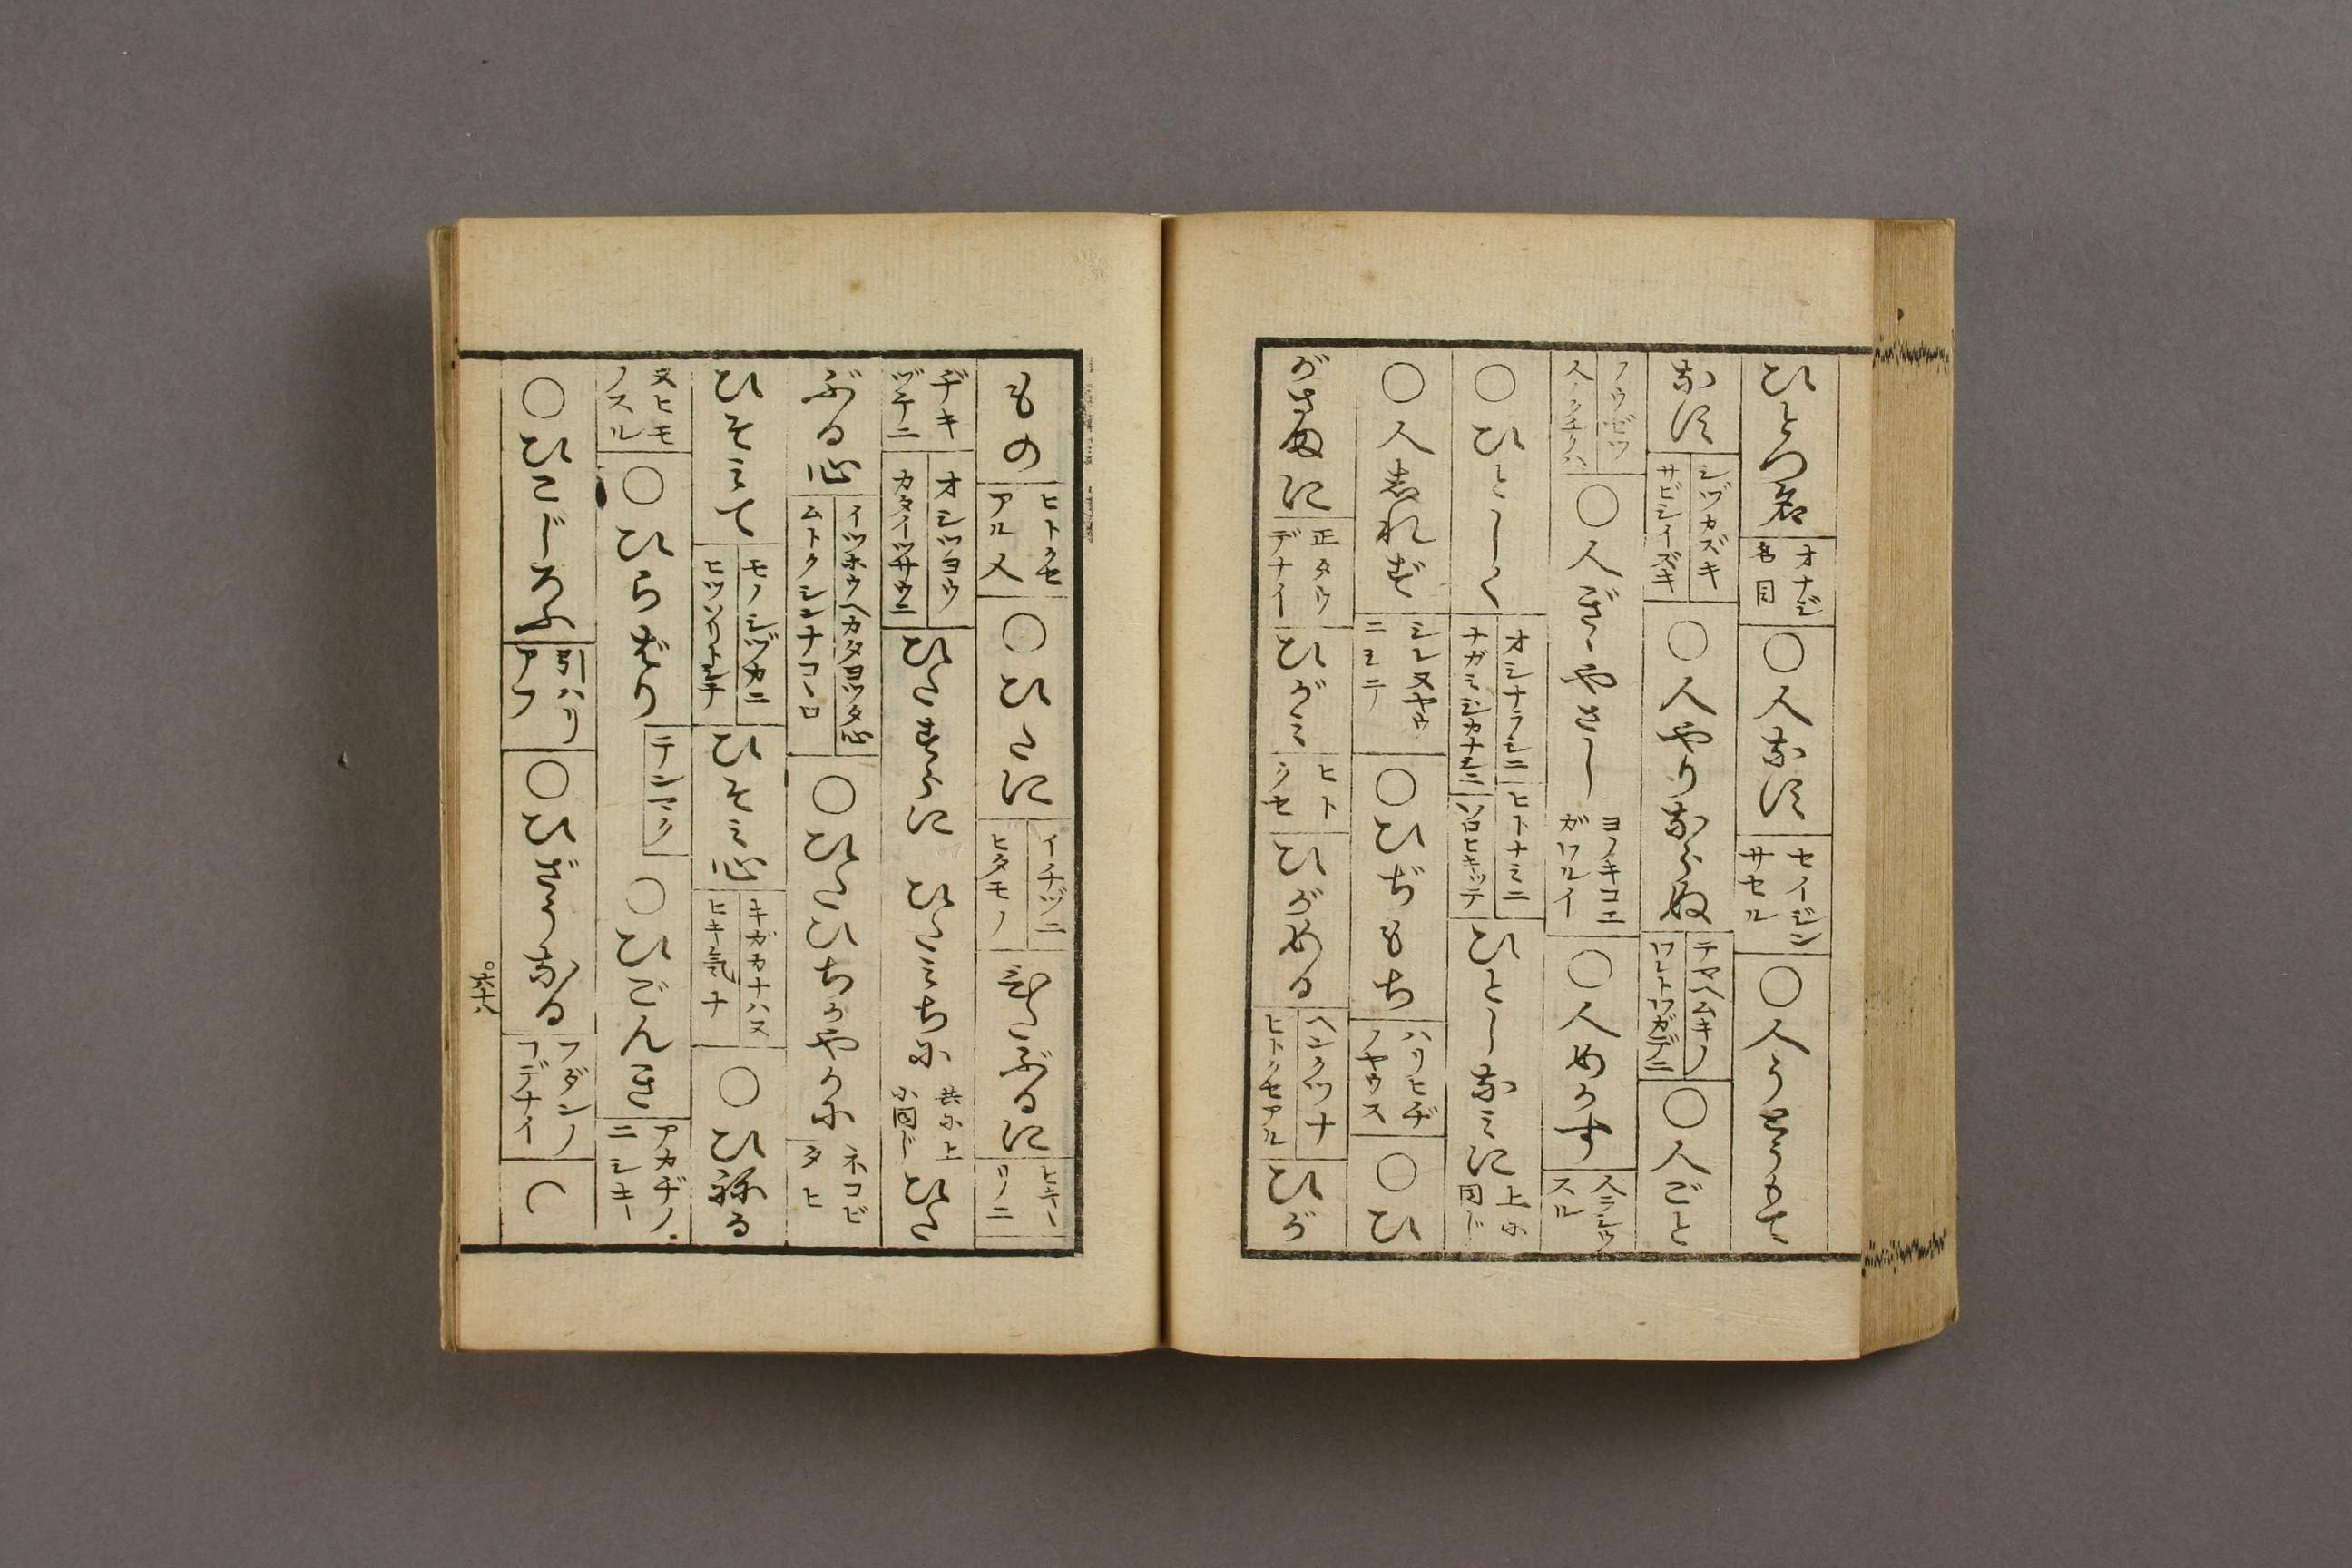 ひとつ名 オナジ名目 ○人なす セイジンサセル ○人う
なす シヅカズキサビシイズキ ○人やりならぬ テマヘムキノワレトワガデニ ○人ごと
○人ざゝやさし ヨノキコエガワルイ ○人めかす 人ラシウスル
○ひとしく オシナラシニナガシシカナミニ ヒトナミニソロヒキッテ ひとしなみに 上に同じ
○人志れず シレヌヤウニヨニテ ○ひぢもち ハリヒヂノヤウス ○ひ
がさまに 正タウデナイ ひがミ ヒトクセ ひがめる ヘンクツナヒトクセアル ひが
もの ヒトクセアル人 ○ひたに イチヅニヒタモノ ひたぶるに
ヂキヅケニ オシツヨウカタイツサウニ ひたすらに ひたみちに 共に上に同じ ひた
ぶる心 イツホウヘカタヨツタ心ムトクシンナコヽロ ○ひたひちかやかに ネコビタヒ
ひそミて モノシヅカニヒッソリトシテ ひそミ心 キガカナハヌヒキ気ナ ○ひねる
又ヒモノスル ○ひらばり テンマク ○ひごんき アカヂノニシキ
○ひこじろふ 引ハリアフ ○ひざうなる フダンノコデナイ ○
六十八